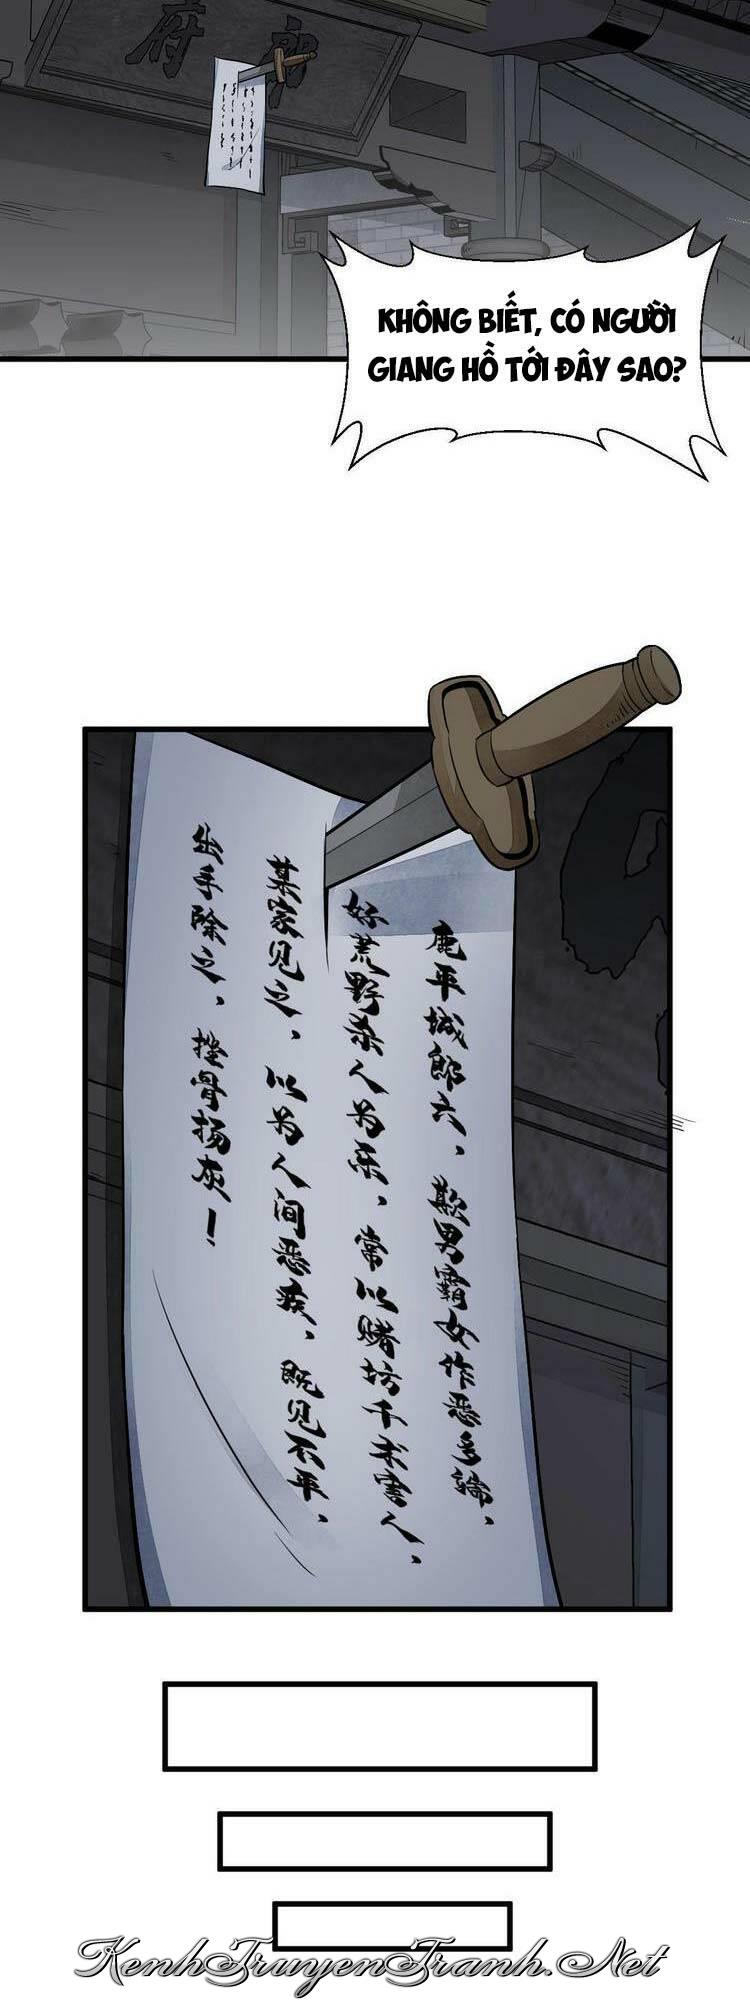 郎府
KHÔNG BIẾT, CÓ NGƯỜI
GIANG HỒ TỚI ĐÂY SAO?
鹿平城郎六，欺男霸女作恶多端，
好荒野杀人为乐，常以赌坊千术害人，
某家见之，以为人间恶疾，既见不平，
出手除之，挫骨扬灰！
KenhTruyenTranh.Net